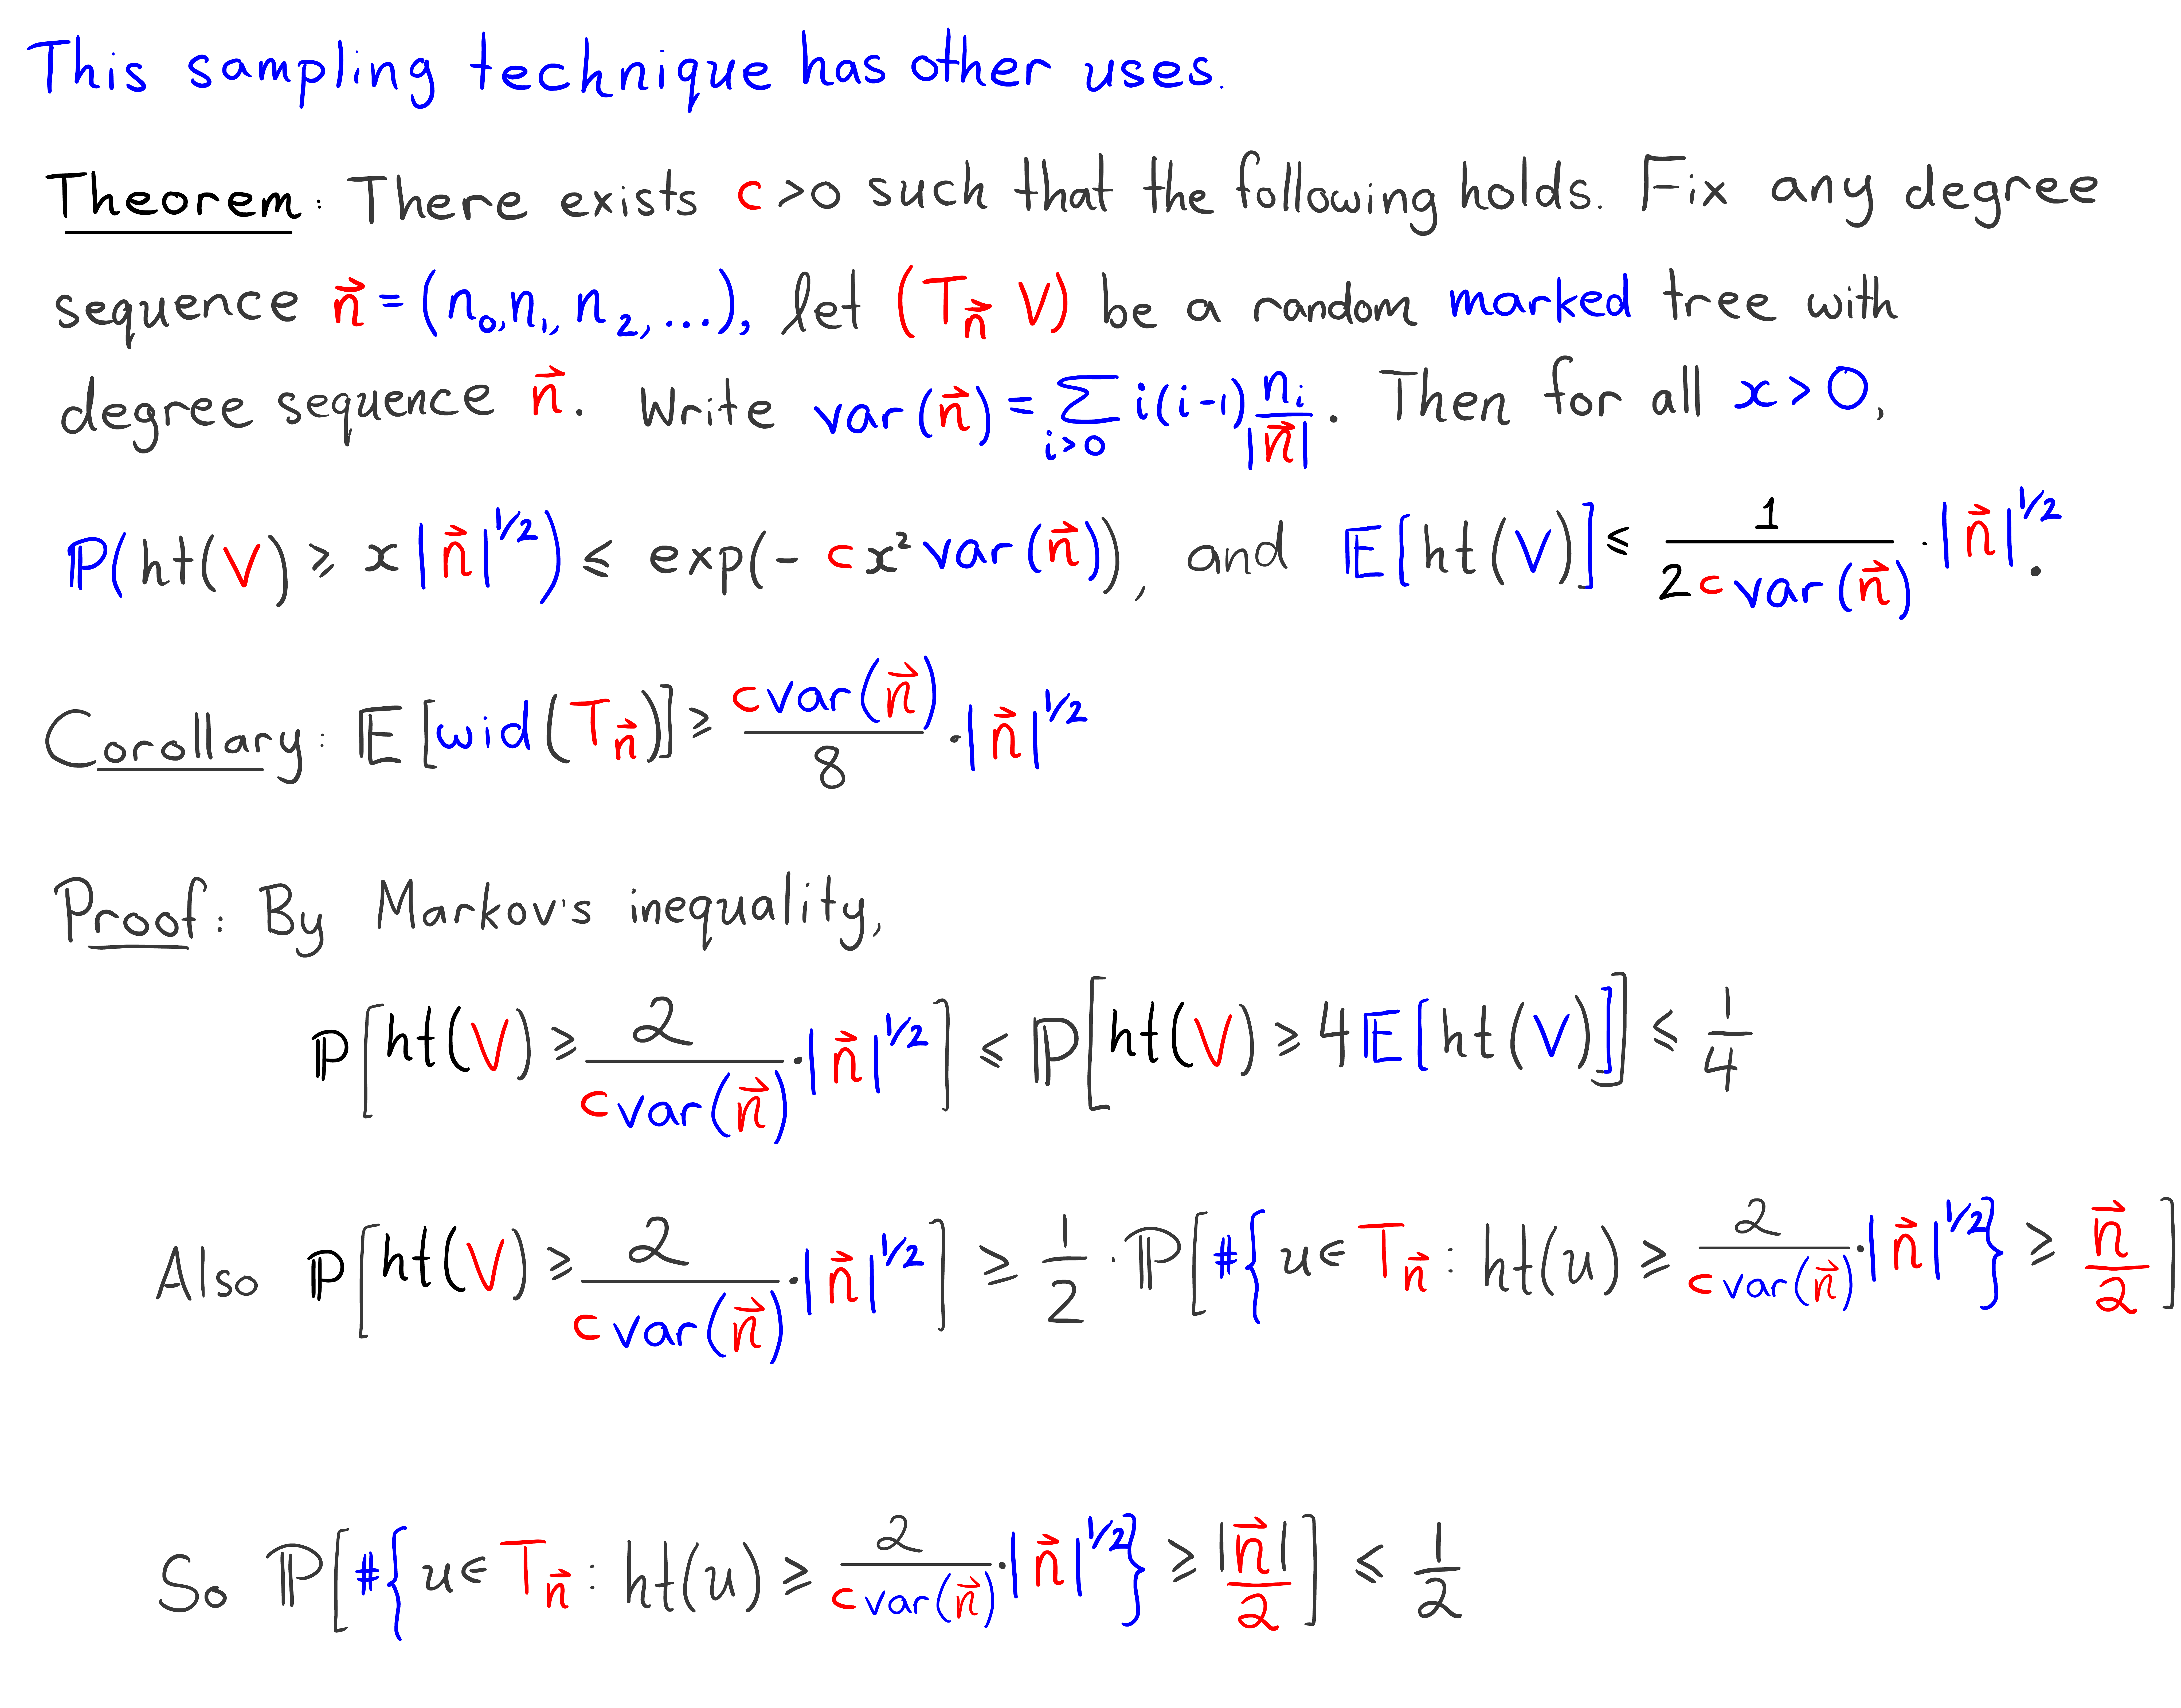 This sampling technique has other uses.
Theorem: There exists c > 0 such that the following holds. Fix any degree
sequence n⃗ = (n₀, n₁, n₂, ...), let (T_n⃗ V) be a random marked tree with
degree sequence n⃗. Write var(n⃗) = ∑_{i>0} i(i-1) n_i/|n⃗|. Then for all x > 0,
P(ht(V) ≥ x|n⃗|^{1/2}) ≤ exp(- c x² var(n⃗)), and E[ht(V)] ≤ 1/(2c var(n⃗)) · |n⃗|^{1/2}.
Corollary: E[wid(T_n⃗)] ≥ c var(n⃗)/8 · |n⃗|^{1/2}
Proof: By Markov's inequality,
P[ht(V) ≥ 2/(c var(n⃗)) · |n⃗|^{1/2}] ≤ P[ht(V) ≥ 4E[ht(V)]] ≤ 1/4
Also P[ht(V) ≥ 2/(c var(n⃗)) · |n⃗|^{1/2}] ≥ 1/2 · P[#{u ∈ T_n⃗ : ht(u) ≥ 2/(c var(n⃗)) · |n⃗|^{1/2}} ≥ n⃗/2]
So P[#{u ∈ T_n⃗ : ht(u) ≥ 2/(c var(n⃗)) · |n⃗|^{1/2}} ≥ |n⃗|/2] ≤ 1/2